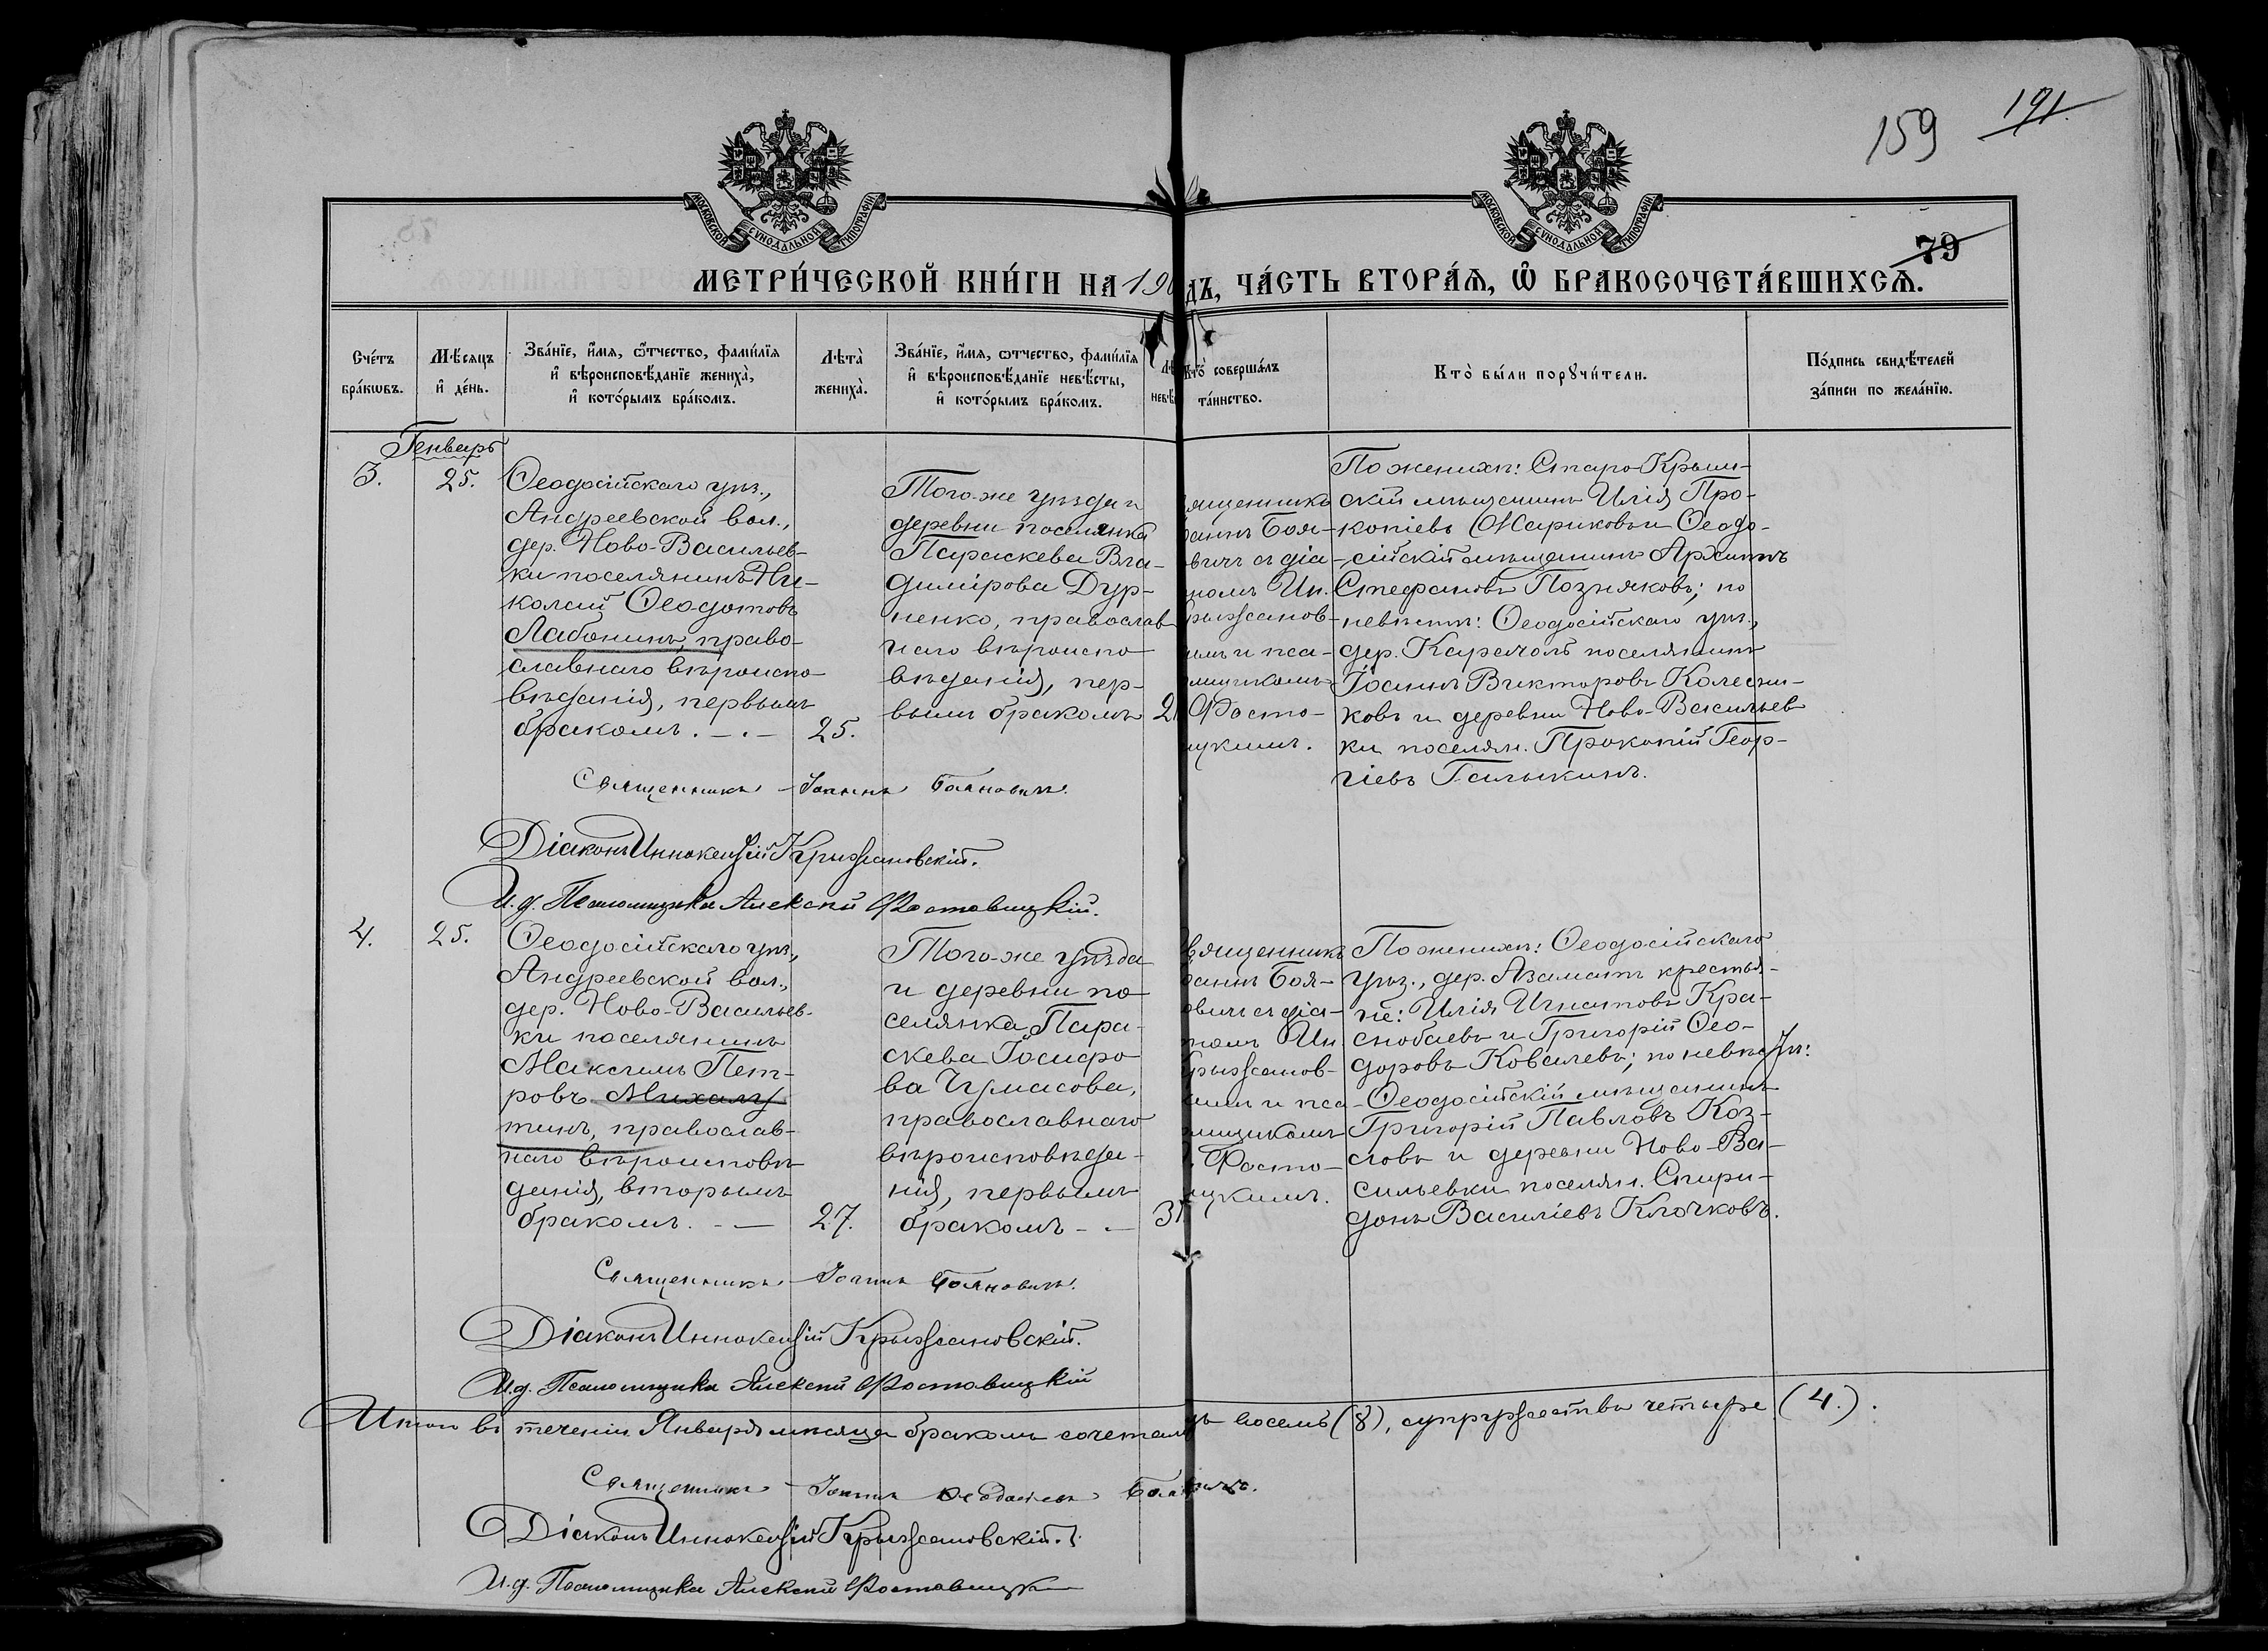 159
191.
МОСКОВСКОЙ СѴНОДАЛЬНОЙ ТИПОГРАФІИ
МОСКОВСКОЙ СѴНОДАЛЬНОЙ ТИПОГРАФІИ
79
МЕТРИ́ЧЕСКОЙ КНИ́ГИ НА 190
ДЪ, ЧА́СТЬ ВТОРА́Ѧ, Ѽ БРАКОСОЧЕТА́ВШИХСѦ.
Сче́тъ бра́кѡвъ.
Мѣ́сяцъ и҆ де́нь.
Зва́нїе, и҆́мѧ, ѻ҆́тчество, фами́лїѧ и҆ вѣроисповѣ́данїе жениха̀, и҆ кото́рымъ бра́комъ.
Лѣта̀ жениха̀.
Зва́нїе, и҆́мѧ, ѻтчество, фами́лїѧ и҆ вѣроисповѣ́данїе невѣ́сты, и҆ кото́рымъ бра́комъ.
Лѣ невѣ
Кто̀ соверша́лъ та́инство.
Кто̀ бы́ли порꙋчи́тели.
По́дпись свидѣ́телей за́писи по жела́нїю.
Генварь
3.
25.
Ѳеодосійскаго уѣз.,
Андреевской вол.,
дер. Ново-Васильев-
ки поселянинъ Ни-
колай Ѳеодотовъ
Лабонинъ, право-
славнаго вѣроиспо-
вѣданія, первымъ
бракомъ. - . -
25.
Того-же уѣзда и
деревни поселянка
Параскева Вла-
димірова Дур-
ненко, православ
наго вѣроиспо
вѣданія, пер-
вымъ бракомъ
21
ященникъ
оаннъ Боя-
овичъ съ діа-
номъ Ин.
рыжанов-
имъ и пса-
мщикомъ
Росто-
цкимъ.
По женихѣ: Старо-Крым-
скій мѣщанинъ Илія Про-
копіевъ Жариковъ и Ѳеодо-
сійскій мѣщанинъ Архипъ
Стефановъ Позняковъ; по
невѣстѣ: Ѳеодосійскаго уѣз.,
дер. Карачоль поселянинъ
Іоаннъ Викторовъ Колесни-
ковъ и деревни Ново-Васильев
ки поселян. Прокопій Геор-
гіевъ Галыкинъ.
Священникъ Іоаннъ Бояновичъ.
Діаконъ Иннокентій Крыжановскій.
И.д. Псаломщика Алексѣй Ростовицкій.
4.
25.
Ѳеодосійскаго уѣз.,
Андреевской вол.,
дер. Ново-Васильев-
ки поселянинъ
Максимъ Пет-
ровъ Михалу
тинъ, православ-
наго вѣроисповѣ
данія, вторымъ
бракомъ. - —
27.
Того-же уѣзда
и деревни по
селянка Пара-
скева Іосифо
ва Чумасова,
православнаго
вѣроисповѣда-
нія, первымъ
бракомъ - . —
31
вященникъ
оаннъ Боя-
овичъ съ діа-
номъ Ин
рыжанов-
имъ и пса-
мщикомъ
Росто-
цкимъ.
По женихѣ: Ѳеодосійскаго
уѣз., дер. Азаматъ крестья-
не: Илія Игнатовъ Кра-
снобаевъ и Григорій Ѳео-
доровъ Ковалевъ; по невѣстѣ:
Ѳеодосійскій мѣщанинъ
Григорій Павловъ Коз-
ловъ и деревни Ново-Ва-
сильевки поселян. Спири-
донъ Василіевъ Клочковъ.
Священникъ Іоаннъ Бояновичъ.
Діаконъ Иннокентій Крыжановскій.
И.д. Псаломщика Алексѣй Ростовицкій
Итого въ теченіи Января мѣсяца бракомъ сочетал ь восемь (8), супружества четыре (4.).
Священникъ Іоаннъ Боя вичъ.
Діаконъ Иннокентій Крыжановскій.
И.д. Псаломщика Алексѣй Ростовицк